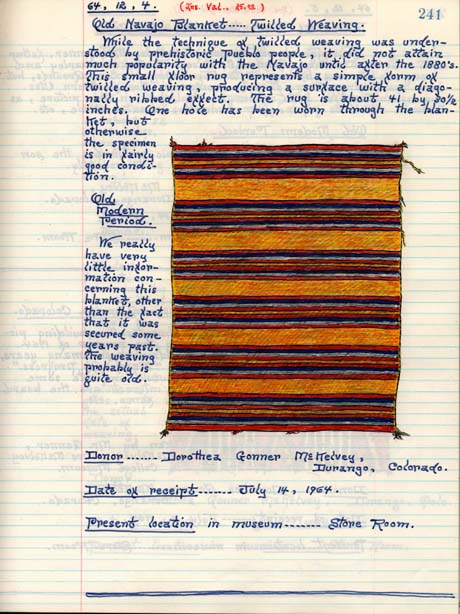 64, 12, 4. (Ins. Val., 25.00)
241
Old Navajo Blanket..... Twilled Weaving.
While the technique of twilled weaving was under-
stood by prehistoric Pueblo people, it did not attain
much popularity with the Navajo until after the 1880's.
This small floor rug represents a simple form of
twilled weaving, producing a surface with a diago-
nally ribbed effect. The rug is about 41 by 30½
inches. One hole has been worn through the blan-
ket, but
otherwise
the specimen
is in fairly
good condi-
tion.
Old
Modern
Period.
We really
have very
little infor-
mation con-
cerning this
blanket, other
than the fact
that it was
secured some
years past.
The weaving
probably is
quite old.
Donor ------- Dorothea Gonner McKelvey,
Durango, Colorado.
Date of receipt ------- July 14, 1964.
Present location in museum ------- Store Room.